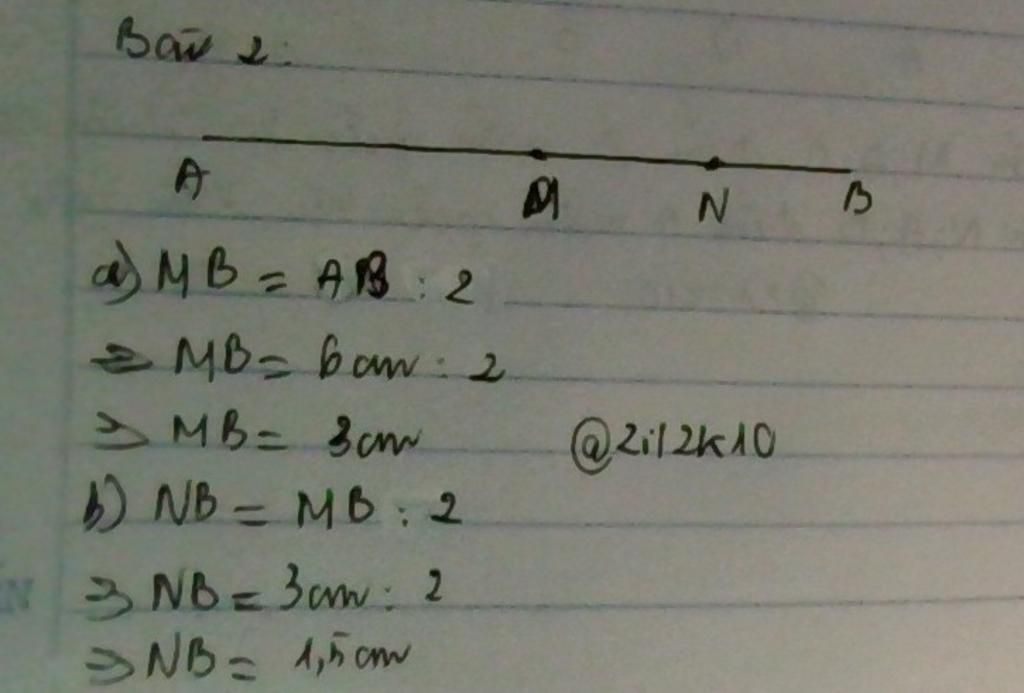 Bài 2:
A M N B
a) MB = AB : 2
=> MB = 6cm : 2
=> MB = 3cm @Zil2k10
b) NB = MB : 2
=> NB = 3cm : 2
=> NB = 1,5cm